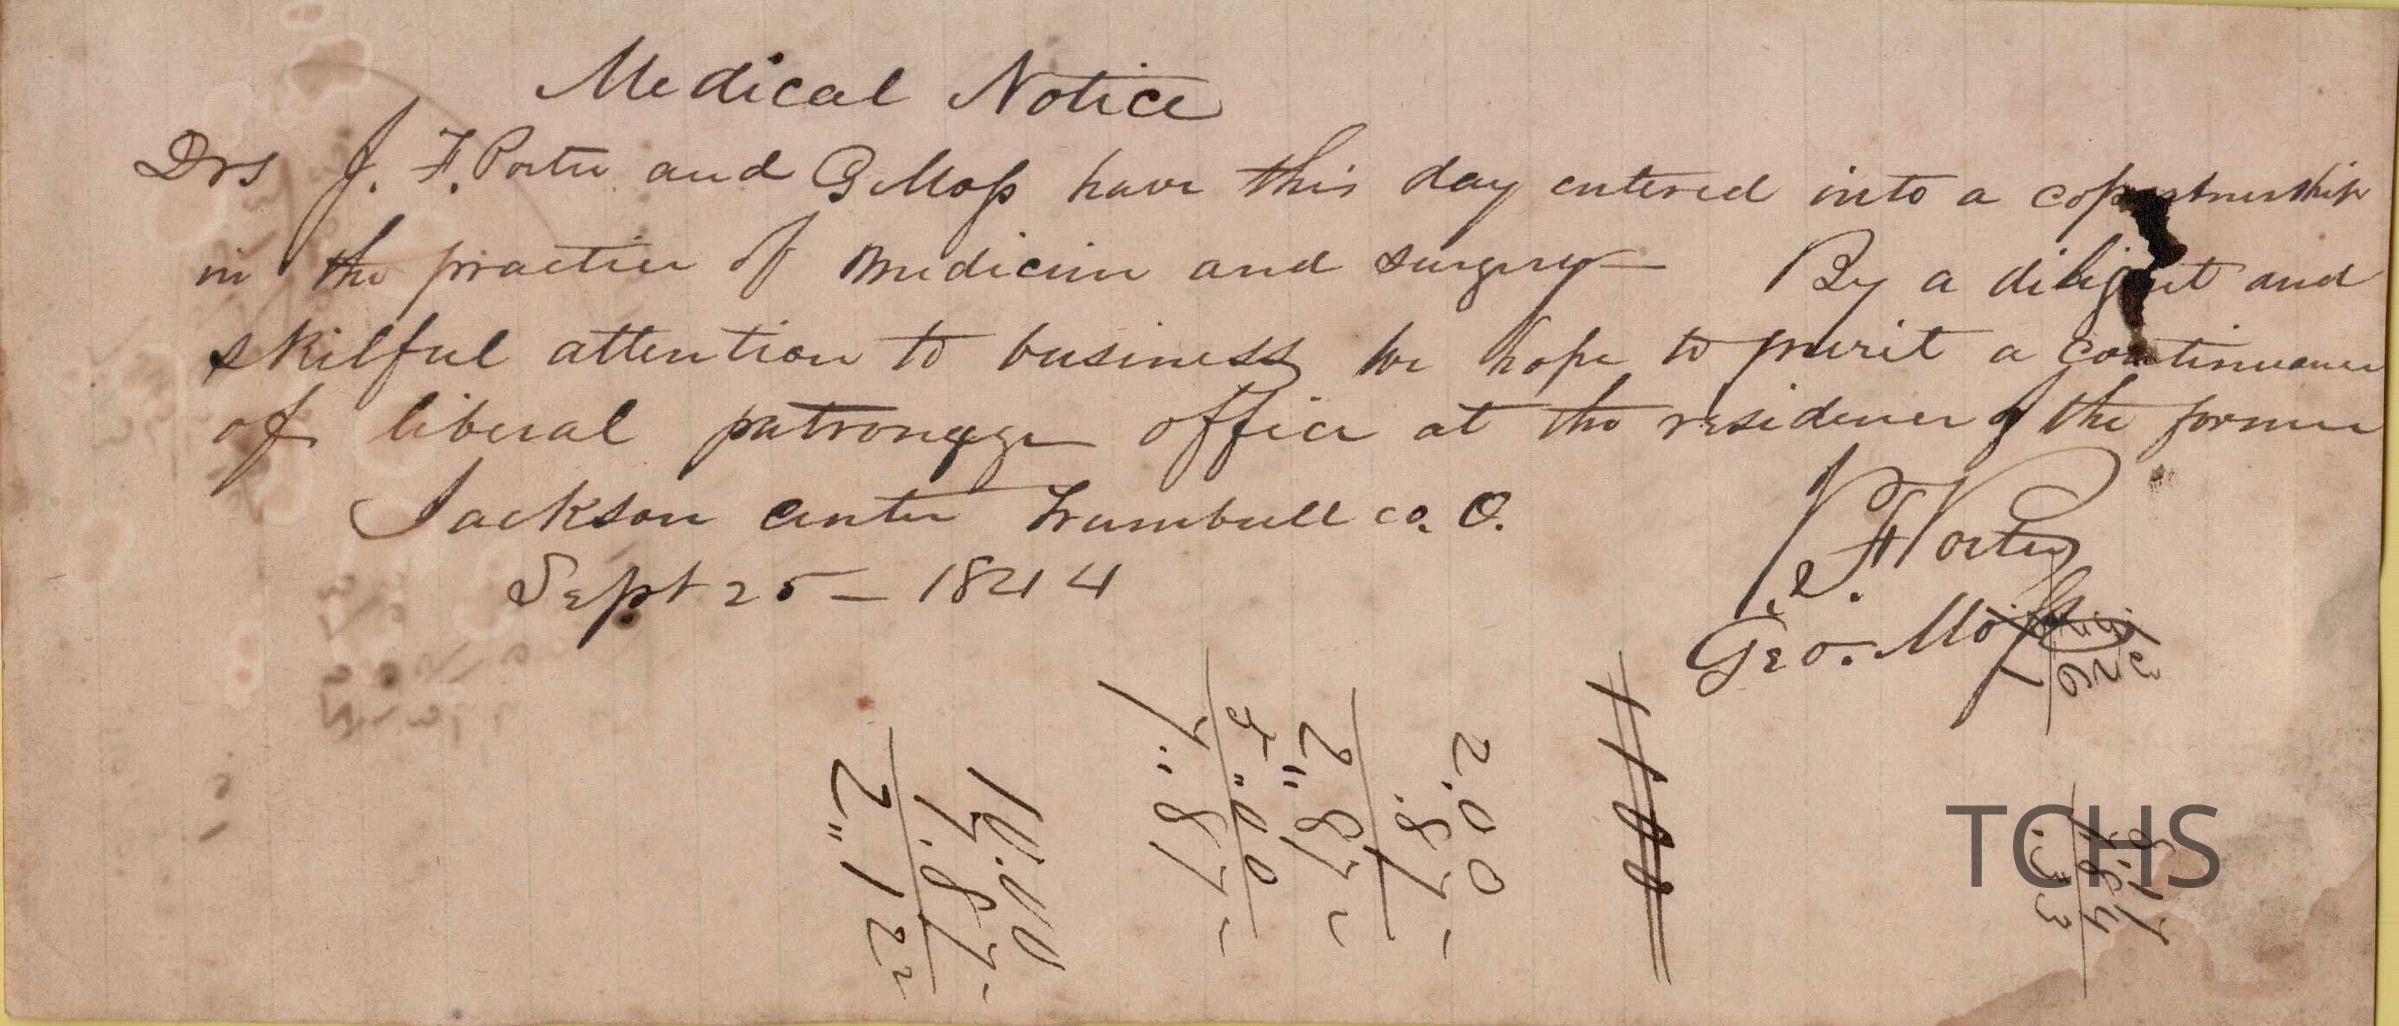 Medical Notice
Drs J. F. Porter and G Moss have this day entered into a copartnership
in the practice of medicine and surgery — By a diligent and
skilful attention to business we hope to merit a continuance
of liberal patronage office at the residence of the former
Jackson center Trumbull co. O.
Sept 25 — 1844
J. F. Porter
Geo. Moss
2.00
.87
2"87
5"00
7"87
10.00
7.87
2"12
100
8.17
7.84
.33
TCHS